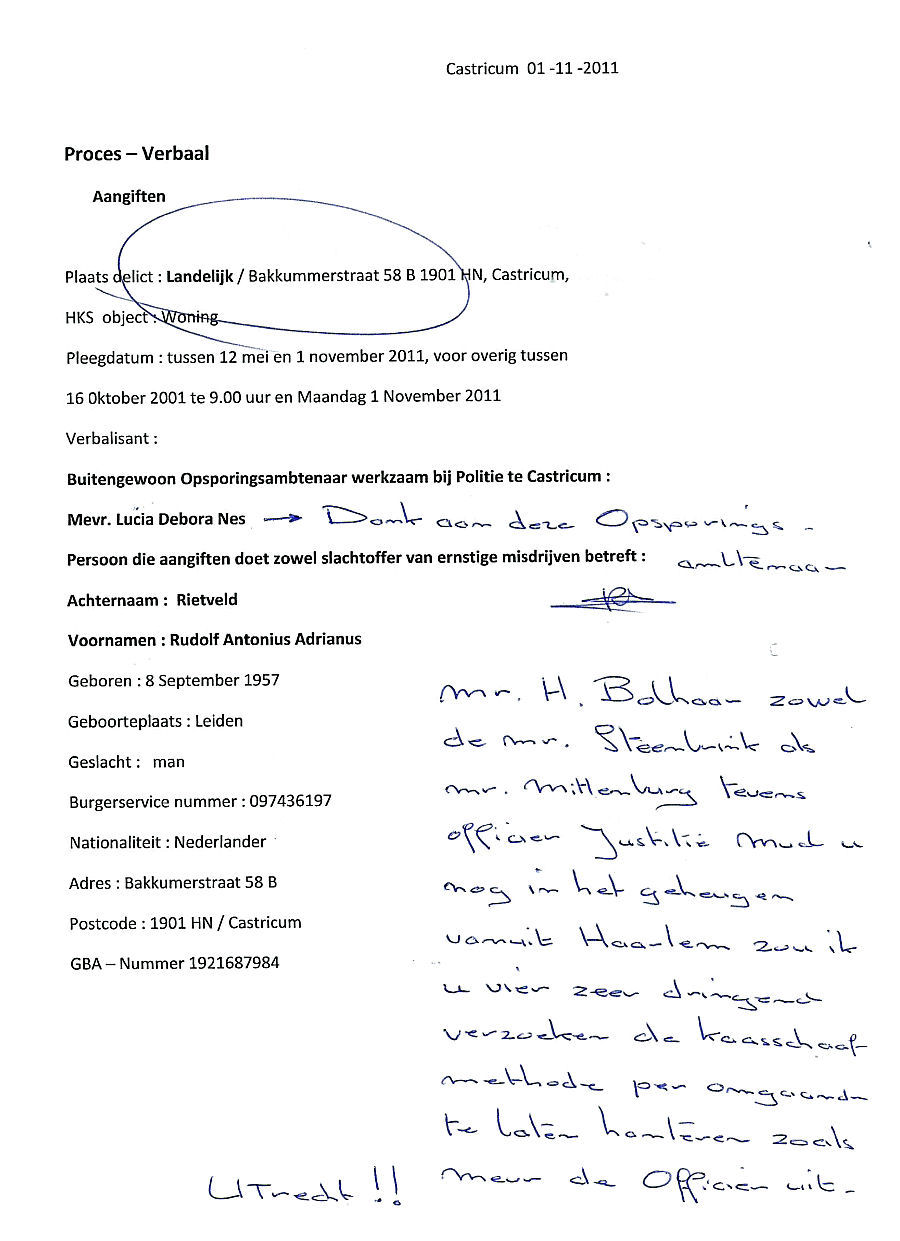 Castricum 01 -11 -2011
Proces – Verbaal
Aangiften
Plaats delict : Landelijk / Bakkummerstraat 58 B 1901 HN, Castricum,
HKS object : Woning
Pleegdatum : tussen 12 mei en 1 november 2011, voor overig tussen
16 0ktober 2001 te 9.00 uur en Maandag 1 November 2011
Verbalisant :
Buitengewoon Opsporingsambtenaar werkzaam bij Politie te Castricum :
Mevr. Lucia Debora Nes → Dank aan deze Opsporings -
Persoon die aangiften doet zowel slachtoffer van ernstige misdrijven betreft :
Achternaam : Rietveld
Voornamen : Rudolf Antonius Adrianus
Geboren : 8 September 1957
Geboorteplaats : Leiden
Geslacht : man
Burgerservice nummer : 097436197
Nationaliteit : Nederlander
Adres : Bakkumerstraat 58 B
Postcode : 1901 HN / Castricum
GBA – Nummer 1921687984
mr. H. Bolhaar zowel
de mr. Steenbrink als
mr. Mittenburg tevens
officier Justitie u
nog in het geheugen
vanuit Haarlem zou ik
u vier zeer dringend
verzoeken de kaasschaaf
methode per omgaand
te laten hanteren zoals
mevr de Officier uit -
UTrecht !!